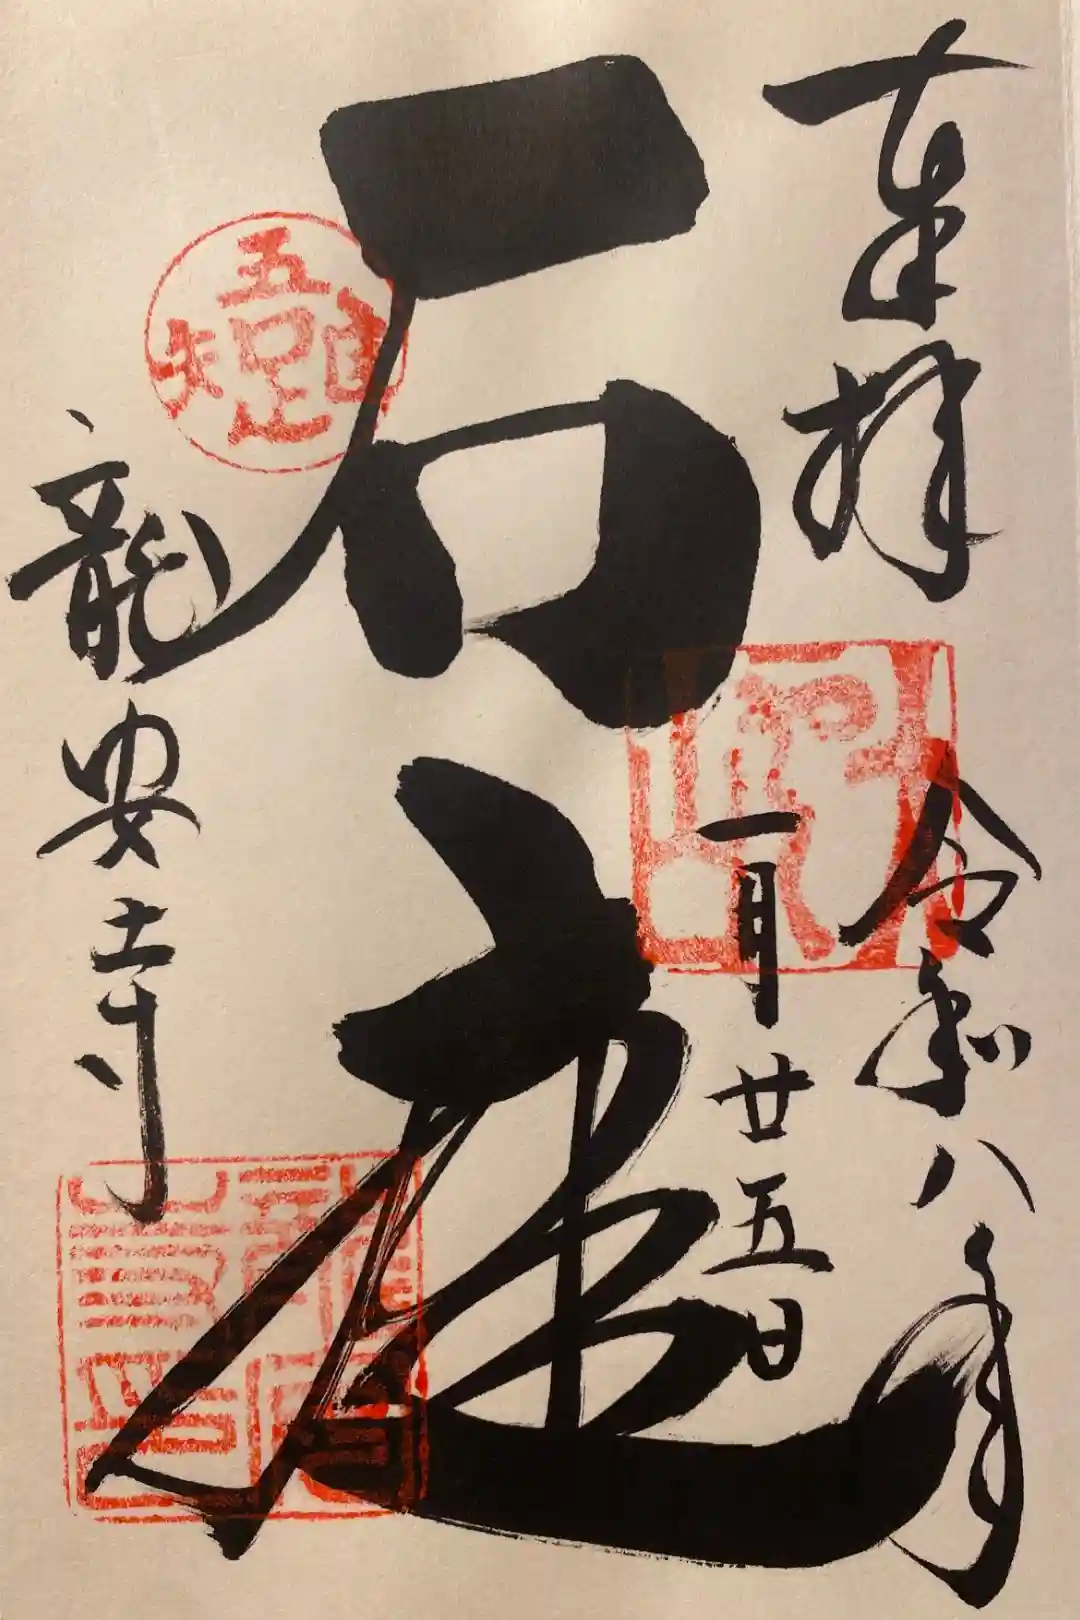 奉拝
令和八年
一月廿五日
石庭
龍安寺
吾唯足知